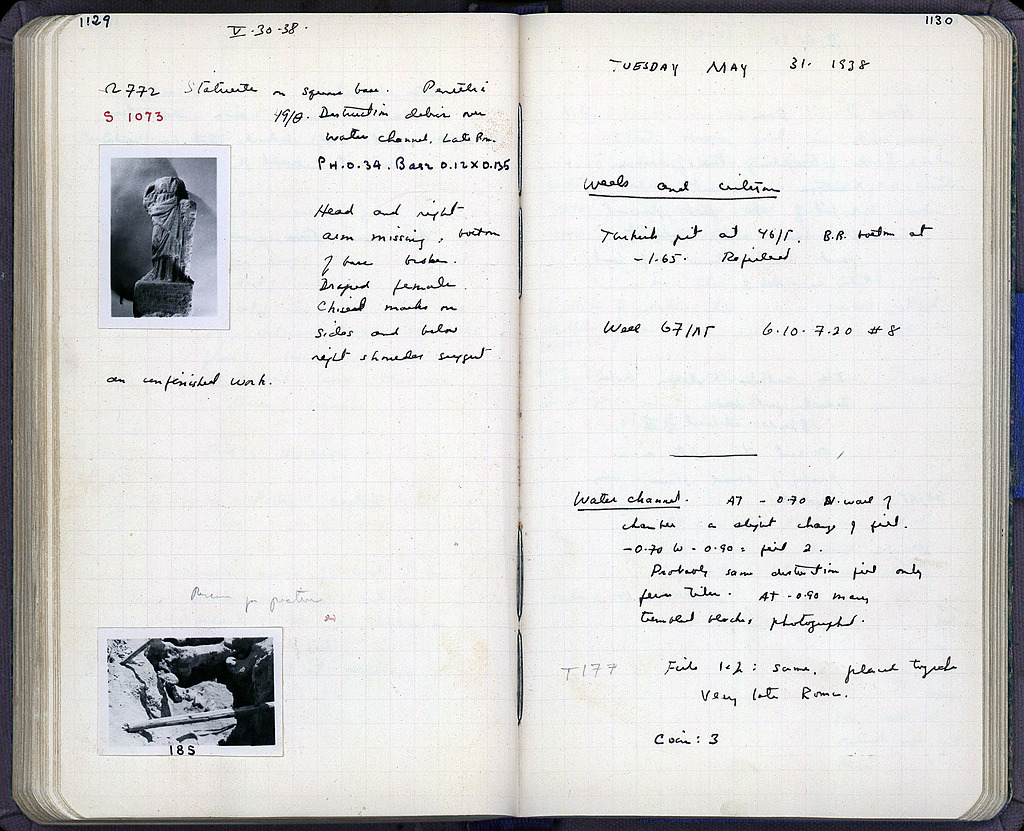 1129
V·30·38·
Ω 772 Statuette on square base. Pentelic
S 1073
49/Θ. Destruction debris over
water channel, Late Rom.
P.H. 0.34. Base 0.12 X 0.135
Head and right
arm missing, bottom
of base broken.
Draped female.
Chisel marks on
sides and below
right shoulder suggest
an unfinished work.
185
1130
TUESDAY MAY 31. 1938
Wells and cistern
Turkish pit at 46/Γ. B.R. bottom at
-1.65. Refilled
Well 67/ΛΓ 6.10-7.20 #8
Water channel. AT -0.70 N. wall of
chamber a slight change of fill.
-0.70 to -0.90 = fill 2.
Probably same destruction fill only
fewer tiles. At -0.90 many
tumbled blocks, photographed.
T177
Fills 1+2: same, placed together
Very late Roman.
Coin: 3